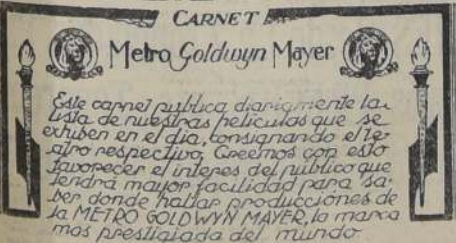 CARNET
Metro Goldwyn Mayer
Este carnet publica diariamente la
lista de nuestras peliculas que se
exhiben en el dia, consignando el te-
atro respectivo. Creemos con esto
favorecer el interes del publico que
tendrá mayor facilidad para sa-
ber donde hallar producciones de
la METRO GOLDWYN MAYER, la marca
mas prestigiada del mundo.